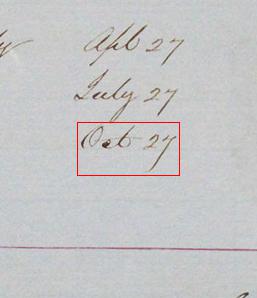 Apl 27
July 27
Oct 27